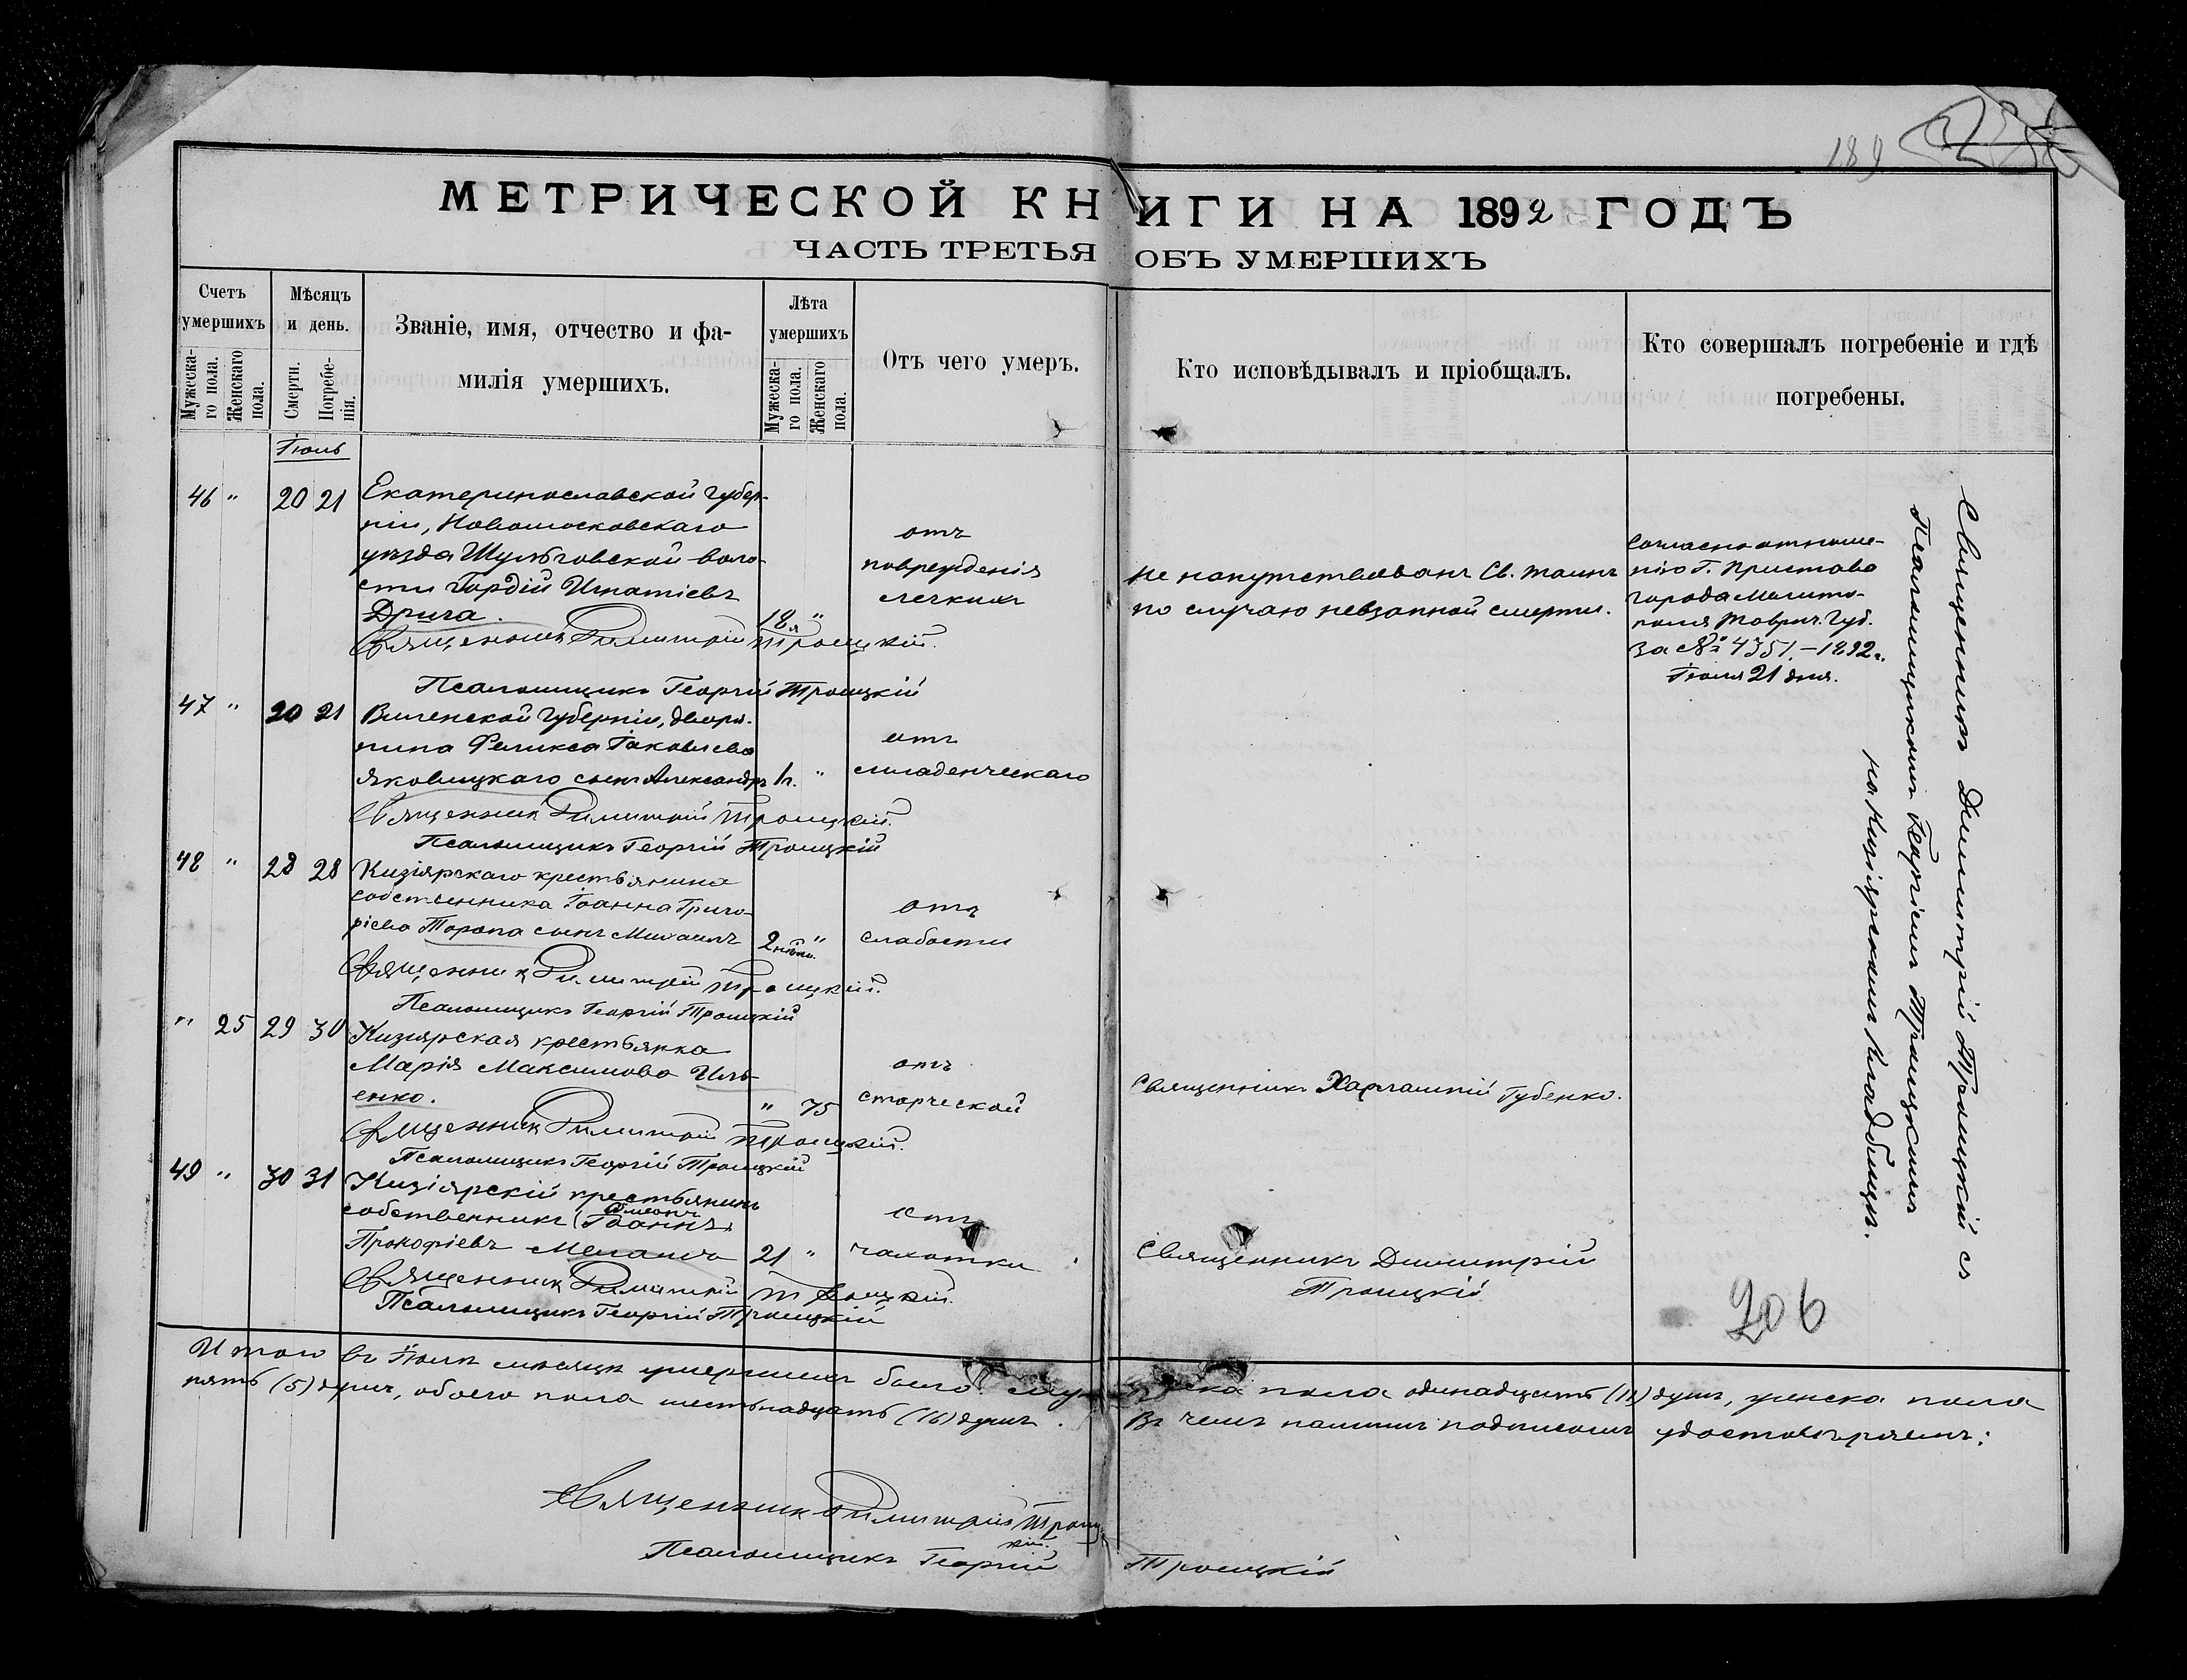 189
МЕТРИЧЕСКОЙ КНИГИ НА 1892 ГОДЪ
ЧАСТЬ ТРЕТЬЯ ОБЪ УМЕРШИХЪ
Счетъ умершихъ
Мужеска-го пола.
Женскаго пола.
Мѣсяцъ и день.
Смерти.
Погребе-нія.
Званіе, имя, отчество и фа-
милія умершихъ.
Лѣта умершихъ
Мужеска-го пола.
Женскаго пола.
Отъ чего умеръ.
Кто исповѣдывалъ и пріобщалъ.
Кто совершалъ погребеніе и гдѣ
погребены.
Іюль
46 " 20 21
Екатеринославской губер-
ніи, Новомосковскаго
уѣзда Шульговской воло-
сти Гордій Игнатіевъ
Дрига.
18 "
отъ
поврежденія
легкихъ
Не напутствованъ Св. таинъ
по случаю невзапной смерти.
Согласно отноше-
нію Г. Пристава
города Мелито-
поля Таврич. Губ.
за № 4351.–1892 г.
Іюля 21 дня.
Священникъ Димитрій Троицкій.
Псаломщикъ Георгій Троицкій
47 " 20 21
Виленской губерніи, дворя-
нина Феликса Іаковлева
Яковицкаго сынъ Александръ
1 г. "
отъ
младенческаго
Священникъ Димитрій Троицкій.
Псаломщикъ Георгій Троицкій
48 " 28 28
Кизіярскаго крестьянина
собственника Іоанна Григо-
ріева Торопа сынъ Михаилъ
2 "
отъ
слабости
Священникъ Димитрій Троицкій.
Псаломщикъ Георгій Троицкій
" 25 29 30
Кизіярская крестьянка
Марія Максимова Иль-
енко.
" 75
отъ
старческой
Священникъ Харлампій Губенко.
Священникъ Димитрій Троицкій.
Псаломщикъ Георгій Троицкій
49 " 30 31
Кизіярскій крестьянинъ
собственникъ (Іоаннъ)
Прокофіевъ
21 "
отъ
чахотки
Священникъ Димитрій
Троицкій
Священникъ Димитрій Троицкій.
Псаломщикъ Георгій Троицкій
Священникъ Димитрій Троицкій съ
Псаломщикомъ Георгіемъ Троицкимъ
на Кизіярскомъ кладбищѣ.
206
Итого въ Іюлѣ мѣсяцѣ умершихъ было: мужеска пола одинадцать (11) душъ, женска пола
пять (5) душъ, обоего пола шестьнадцать (16) душъ. Въ чемъ нашимъ подписомъ удостовѣряемъ:
Священникъ Димитрій Троиц-
кій.
Псаломщикъ Георгій Троицкій